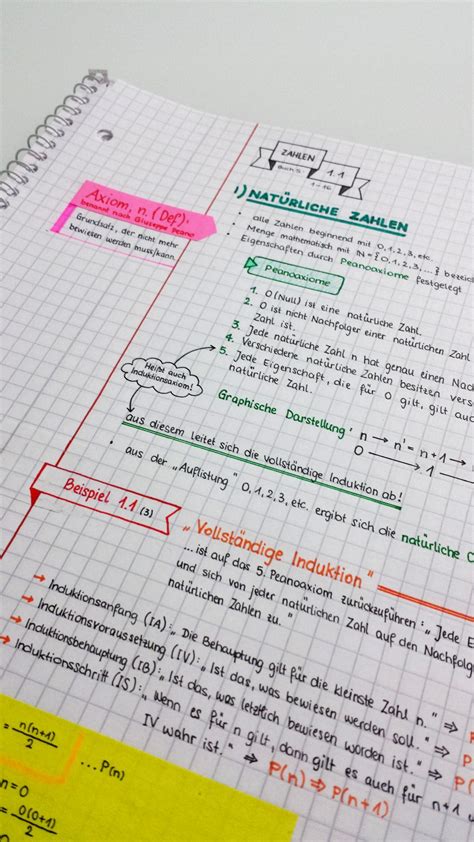 ZAHLEN
Buch S.
1.1
1-16
Axiom, n. (Def).
benannt nach Giuseppe Peano
Grundsatz, der nicht mehr
bewiesen werden muss/kann.
1) NATÜRLICHE ZAHLEN
• alle Zahlen beginnend mit 0,1,2,3, etc.
• Menge mathematisch mit ℕ = {0,1,2,3,...}
Eigenschaften durch Peanoaxiome festgelegt
Peanoaxiome
1. 0 (Null) ist eine natürliche Zahl.
2. 0 ist nicht Nachfolger einer natürlichen Zahl
Zahl ist.
3. Jede natürliche Zahl n hat genau einen
4. Verschiedene natürliche Zahlen besitzen
5. Jede Eigenschaft, die für 0 gilt, gilt auc
natürliche Zahl.
Heißt auch
Induktionsaxiom!
Graphische Darstellung: n → n' = n+1 →
0 → 1
aus diesem leitet sich die vollständige Induktion ab!
• aus der „Auflistung" 0,1,2,3, etc. ergibt sich die natürliche
Beispiel 1.1 (3)
„Vollständige Induktion"
... ist auf das 5. Peanoaxiom zurückzuführen: „Jede E
und sich von jeder natürlichen Zahl auf den Nachfolg
natürlichen Zahlen zu."
→ Induktionsanfang (IA): „Die Behauptung gilt für die kleinste Zahl n." ⇒
→ Induktionsvoraussetzung (IV): „Ist das, was bewiesen werden soll." ⇒ P
→ Induktionsbehauptung (IB): „Ist das, was letztlich bewiesen worden ist." ⇒ P
→ Induktionsschritt (IS): „Wenn es für n gilt, dann gilt es auch für n+1 u
IV wahr ist." ⇒ P(n) ⇒ P(n+1)
= n(n+1)/2 ...P(n)
n=0
= 0(0+1)/2
= 0